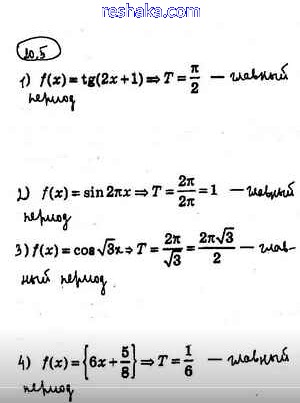 reshaka.com
20.5
1) f(x) = tg(2x + 1) ⇒ T = π/2 — главный
период
2) f(x) = sin 2πx ⇒ T = 2π/2π = 1 — главный
период
3) f(x) = cos √3x ⇒ T = 2π/√3 = 2π√3/2 — глав-
ный период
4) f(x) = {6x + 5/8} ⇒ T = 1/6 — главный
период